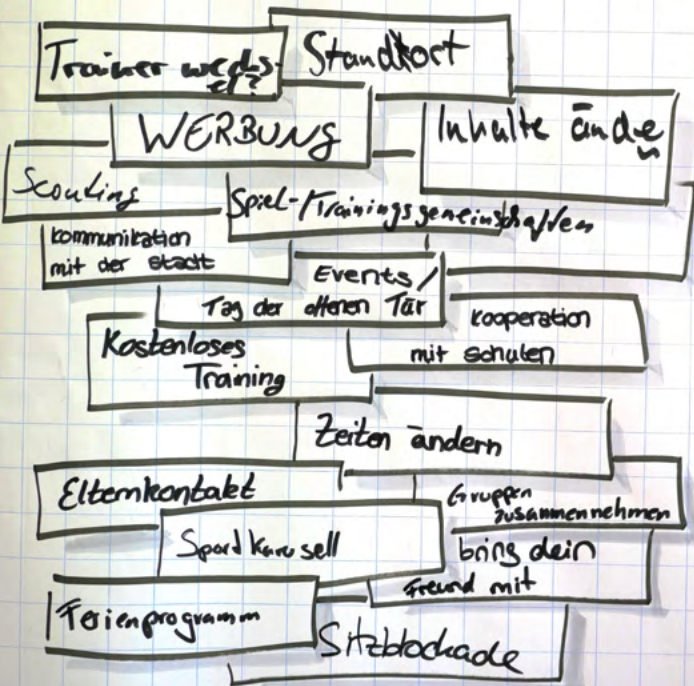 Trainer wechs-
el?
Standkort
WERBUNG
Inhalte ände
n
Scouting
Spiel-/Trainingsgemeinschaften
kommunikation
mit der stadt
Events/
Tag der offenen Tür
kooperation
mit schulen
Kostenloses
Training
Zeiten ändern
Elternkontakt
Gruppen
zusammennehmen
Sportkarusell
bring dein
Freund mit
Ferienprogramm
Sitzblockade